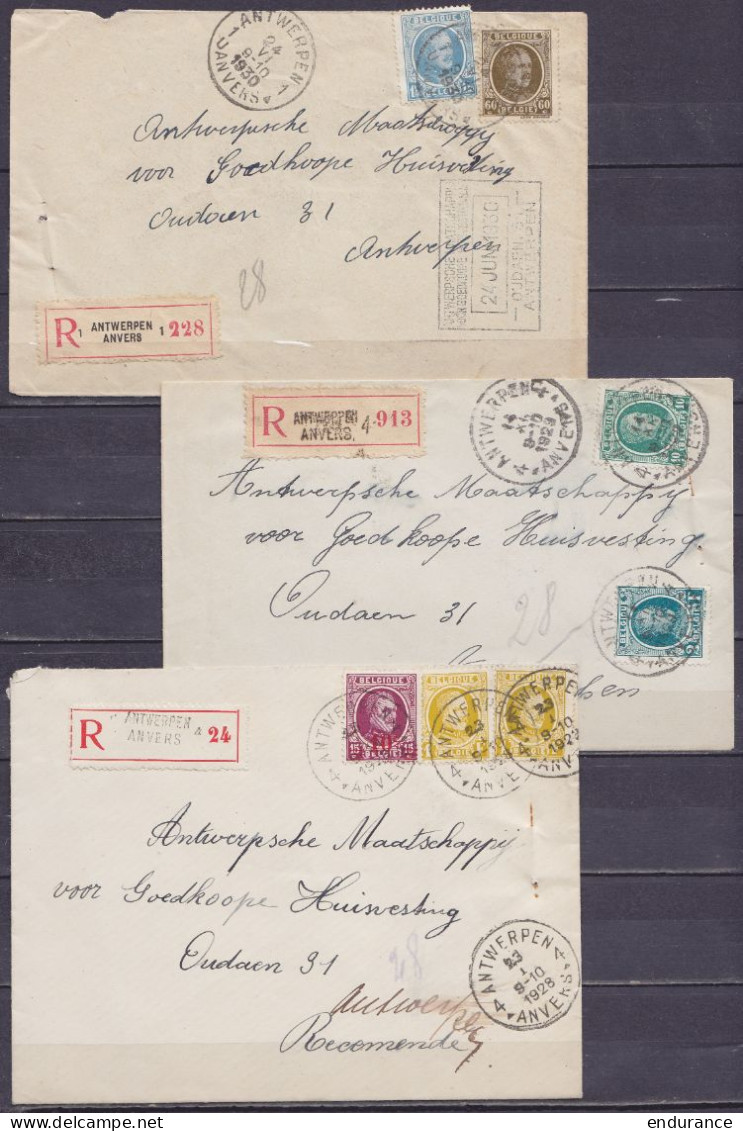 ANTWERPEN
1 1
24
VI
9-10
1930
ANVERS
BELGIQUE
60 60
BELGIË
Antwerpsche Maatschappy
voor Goedkoope Huisvesting
Oudaen 31
Antwerpen
28
24 JUN 1930
OUDAEN, 31
ANTWERPEN
R 1 ANTWERPEN 1 228
ANVERS
R ANTWERPEN 4 913
ANVERS
ANTWERPEN
14
9-10
1929
ANVERS
10 10
Antwerpsche Maatschappy
voor Goedkoope Huisvesting
Oudaen 31
28
BELGIQUE
R ANTWERPEN 4 24
ANVERS
BELGIQUE
15 15
BELGIË
BELGIQUE
ANTWERPEN
23
9-10
ANVERS
Antwerpsche Maatschappij
voor Goedkoope Huisvesting
Oudaen 31
28
Antwerpen
Recomende
ANTWERPEN
4 4
23
I
9-10
1928
ANVERS
endurance